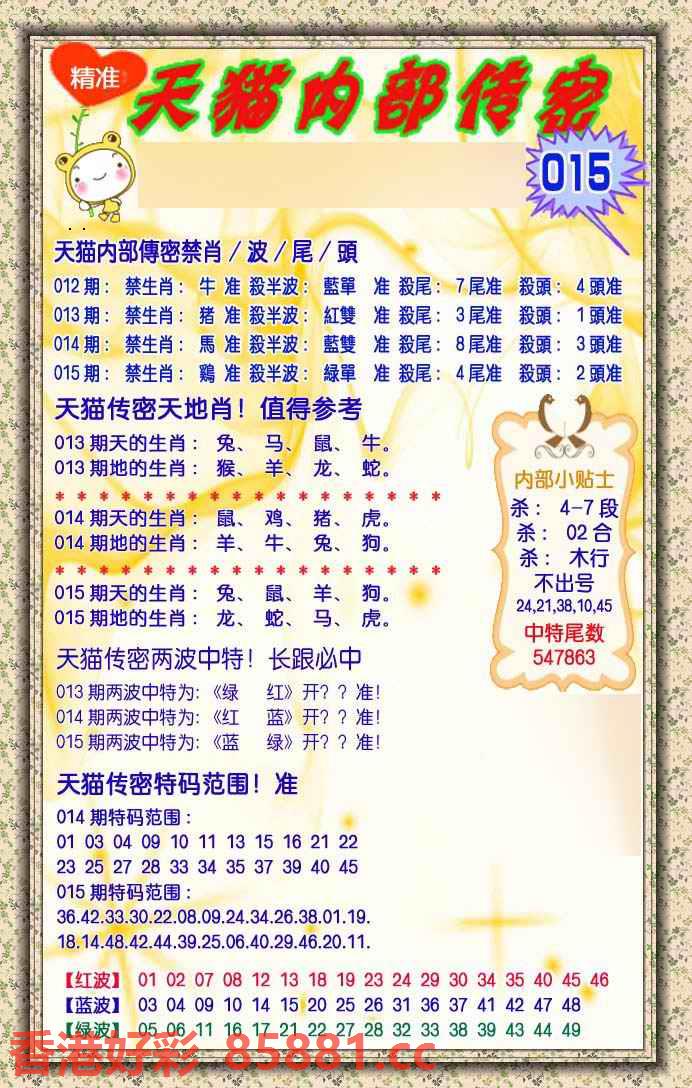 精准
天猫内部传密
015
天猫内部傳密禁肖/波/尾/頭
012期: 禁生肖: 牛 准 殺半波: 藍單 准 殺尾: 7尾准 殺頭: 4頭准
013期: 禁生肖: 猪 准 殺半波: 紅雙 准 殺尾: 3尾准 殺頭: 1頭准
014期: 禁生肖: 馬 准 殺半波: 藍雙 准 殺尾: 8尾准 殺頭: 3頭准
015期: 禁生肖: 鷄 准 殺半波: 緑單 准 殺尾: 4尾准 殺頭: 2頭准
天猫传密天地肖! 值得参考
013期天的生肖: 兔、 马、 鼠、 牛。
013期地的生肖: 猴、 羊、 龙、 蛇。
* * * * * * * * * * * * * * * * *
014期天的生肖: 鼠、 鸡、 猪、 虎。
014期地的生肖: 羊、 牛、 兔、 狗。
* * * * * * * * * * * * * * * * *
015期天的生肖: 兔、 鼠、 羊、 狗。
015期地的生肖: 龙、 蛇、 马、 虎。
内部小贴士
杀: 4-7段
杀: 02合
杀: 木行
不出号
24,21,38,10,45
中特尾数
547863
天猫传密两波中特! 长跟必中
013期两波中特为:《绿 红》开? ? 准!
014期两波中特为:《红 蓝》开? ? 准!
015期两波中特为:《蓝 绿》开? ? 准!
天猫传密特码范围! 准
014期特码范围:
01 03 04 09 10 11 13 15 16 21 22
23 25 27 28 33 34 35 37 39 40 45
015期特码范围:
36.42.33.30.22.08.09.24.34.26.38.01.19.
18.14.48.42.44.39.25.06.40.29.46.20.11.
【红波】 01 02 07 08 12 13 18 19 23 24 29 30 34 35 40 45 46
【蓝波】 03 04 09 10 14 15 20 25 26 31 36 37 41 42 47 48
【绿波】 05 06 11 16 17 21 22 27 28 32 33 38 39 43 44 49
香港好彩 85881.cc